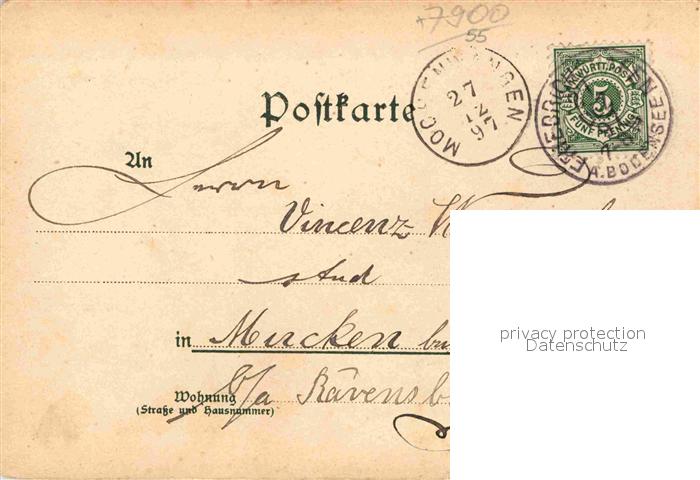 7900
55
MOCHENWANGEN
27
12
97
K.WÜRTT.POST
5
FÜNF PFENNIG
FRIEDRICHSHAFEN
A.BODENSEE
Postkarte
An
Herrn
Vincenz
stud
in Mucken
b/a Ravensb
Wohnung
(Straße und Hausnummer)
privacy protection
Datenschutz